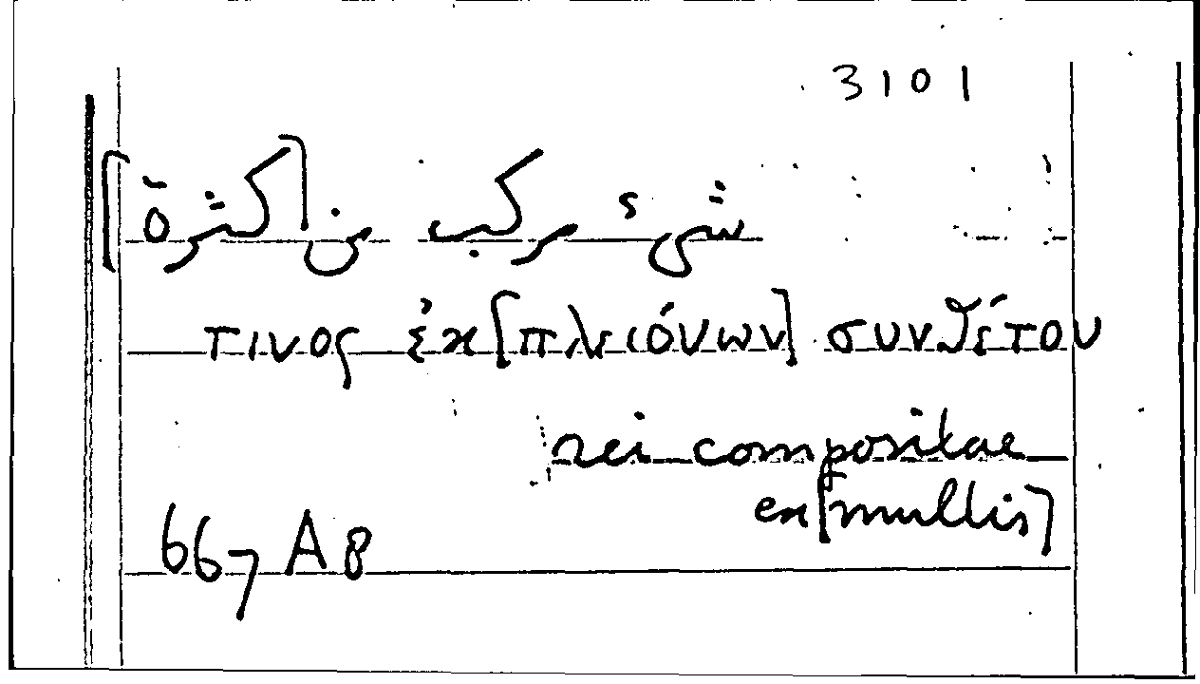 3101
شىء مركب من [كثرة]
τινος ἐκ [πλειόνων] συνθέτου
rei compositae
ex [multis]
667 A8